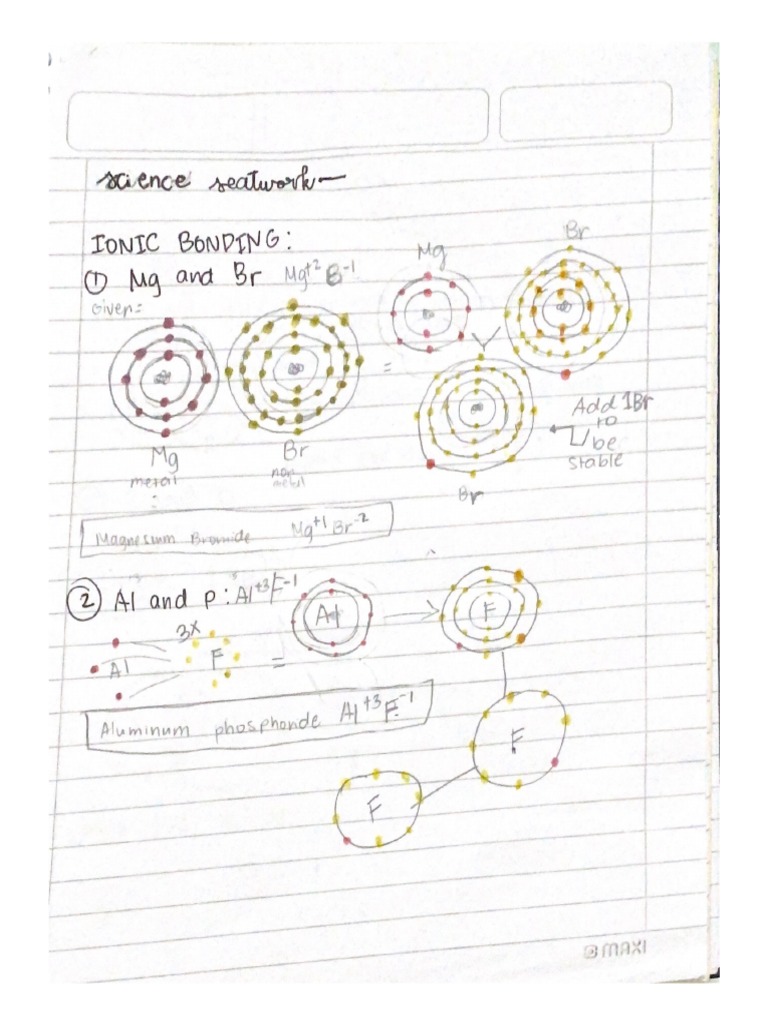 science seatwork—
IONIC BONDING:
① Mg and Br Mg+2 B-1
Given:
Mg
Br
=
Mg
metal
Br
non
metal
Add 1Br
to
be
stable
Br
Magnesium Bromide Mg+1 Br-2
② Al and P: Al+3 F-1
Al
3x
F
=
Al
F
Aluminum phosphoride Al+3 F-1
F
F
MAXI